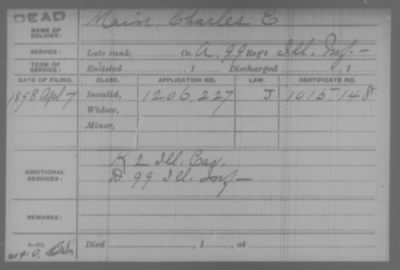 DEAD
NAME OF SOLDIER: Main, Charles E
SERVICE: Late rank, Co. A, 99 Reg't Ill. Inf.
TERM OF SERVICE: Enlisted , 1 Discharged , 1
DATE OF FILING. CLASS. APPLICATION NO. LAW. CERTIFICATE NO.
1898 Apl. 7 Invalid, 1206,227 J 1015,148
Widow,
Minor,
ADDITIONAL SERVICES: K 2 Ill. Cav.
D 99 Ill. Inf
REMARKS:
Died , 1 , at